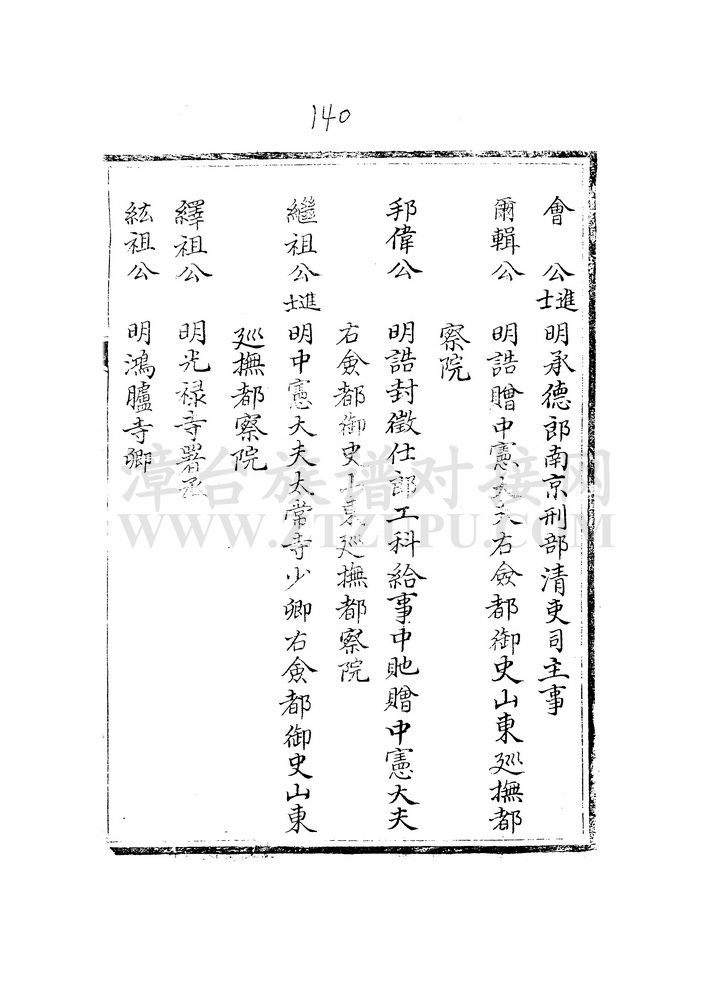 140
會公進士 明承德郎南京刑部清吏司主事
爾輯公 明誥贈中憲大夫右僉都御史山東廵撫都
察院
邦偉公 明誥封徵仕郎工科給事中貤贈中憲大夫
右僉都御史山東廵撫都察院
繼祖公進士 明中憲大夫太常寺少卿右僉都御史山東
廵撫都察院
繹祖公 明光禄寺署丞
紘祖公 明鴻臚寺卿
漳台族谱对接网
WWW.ZTZUPU.COM